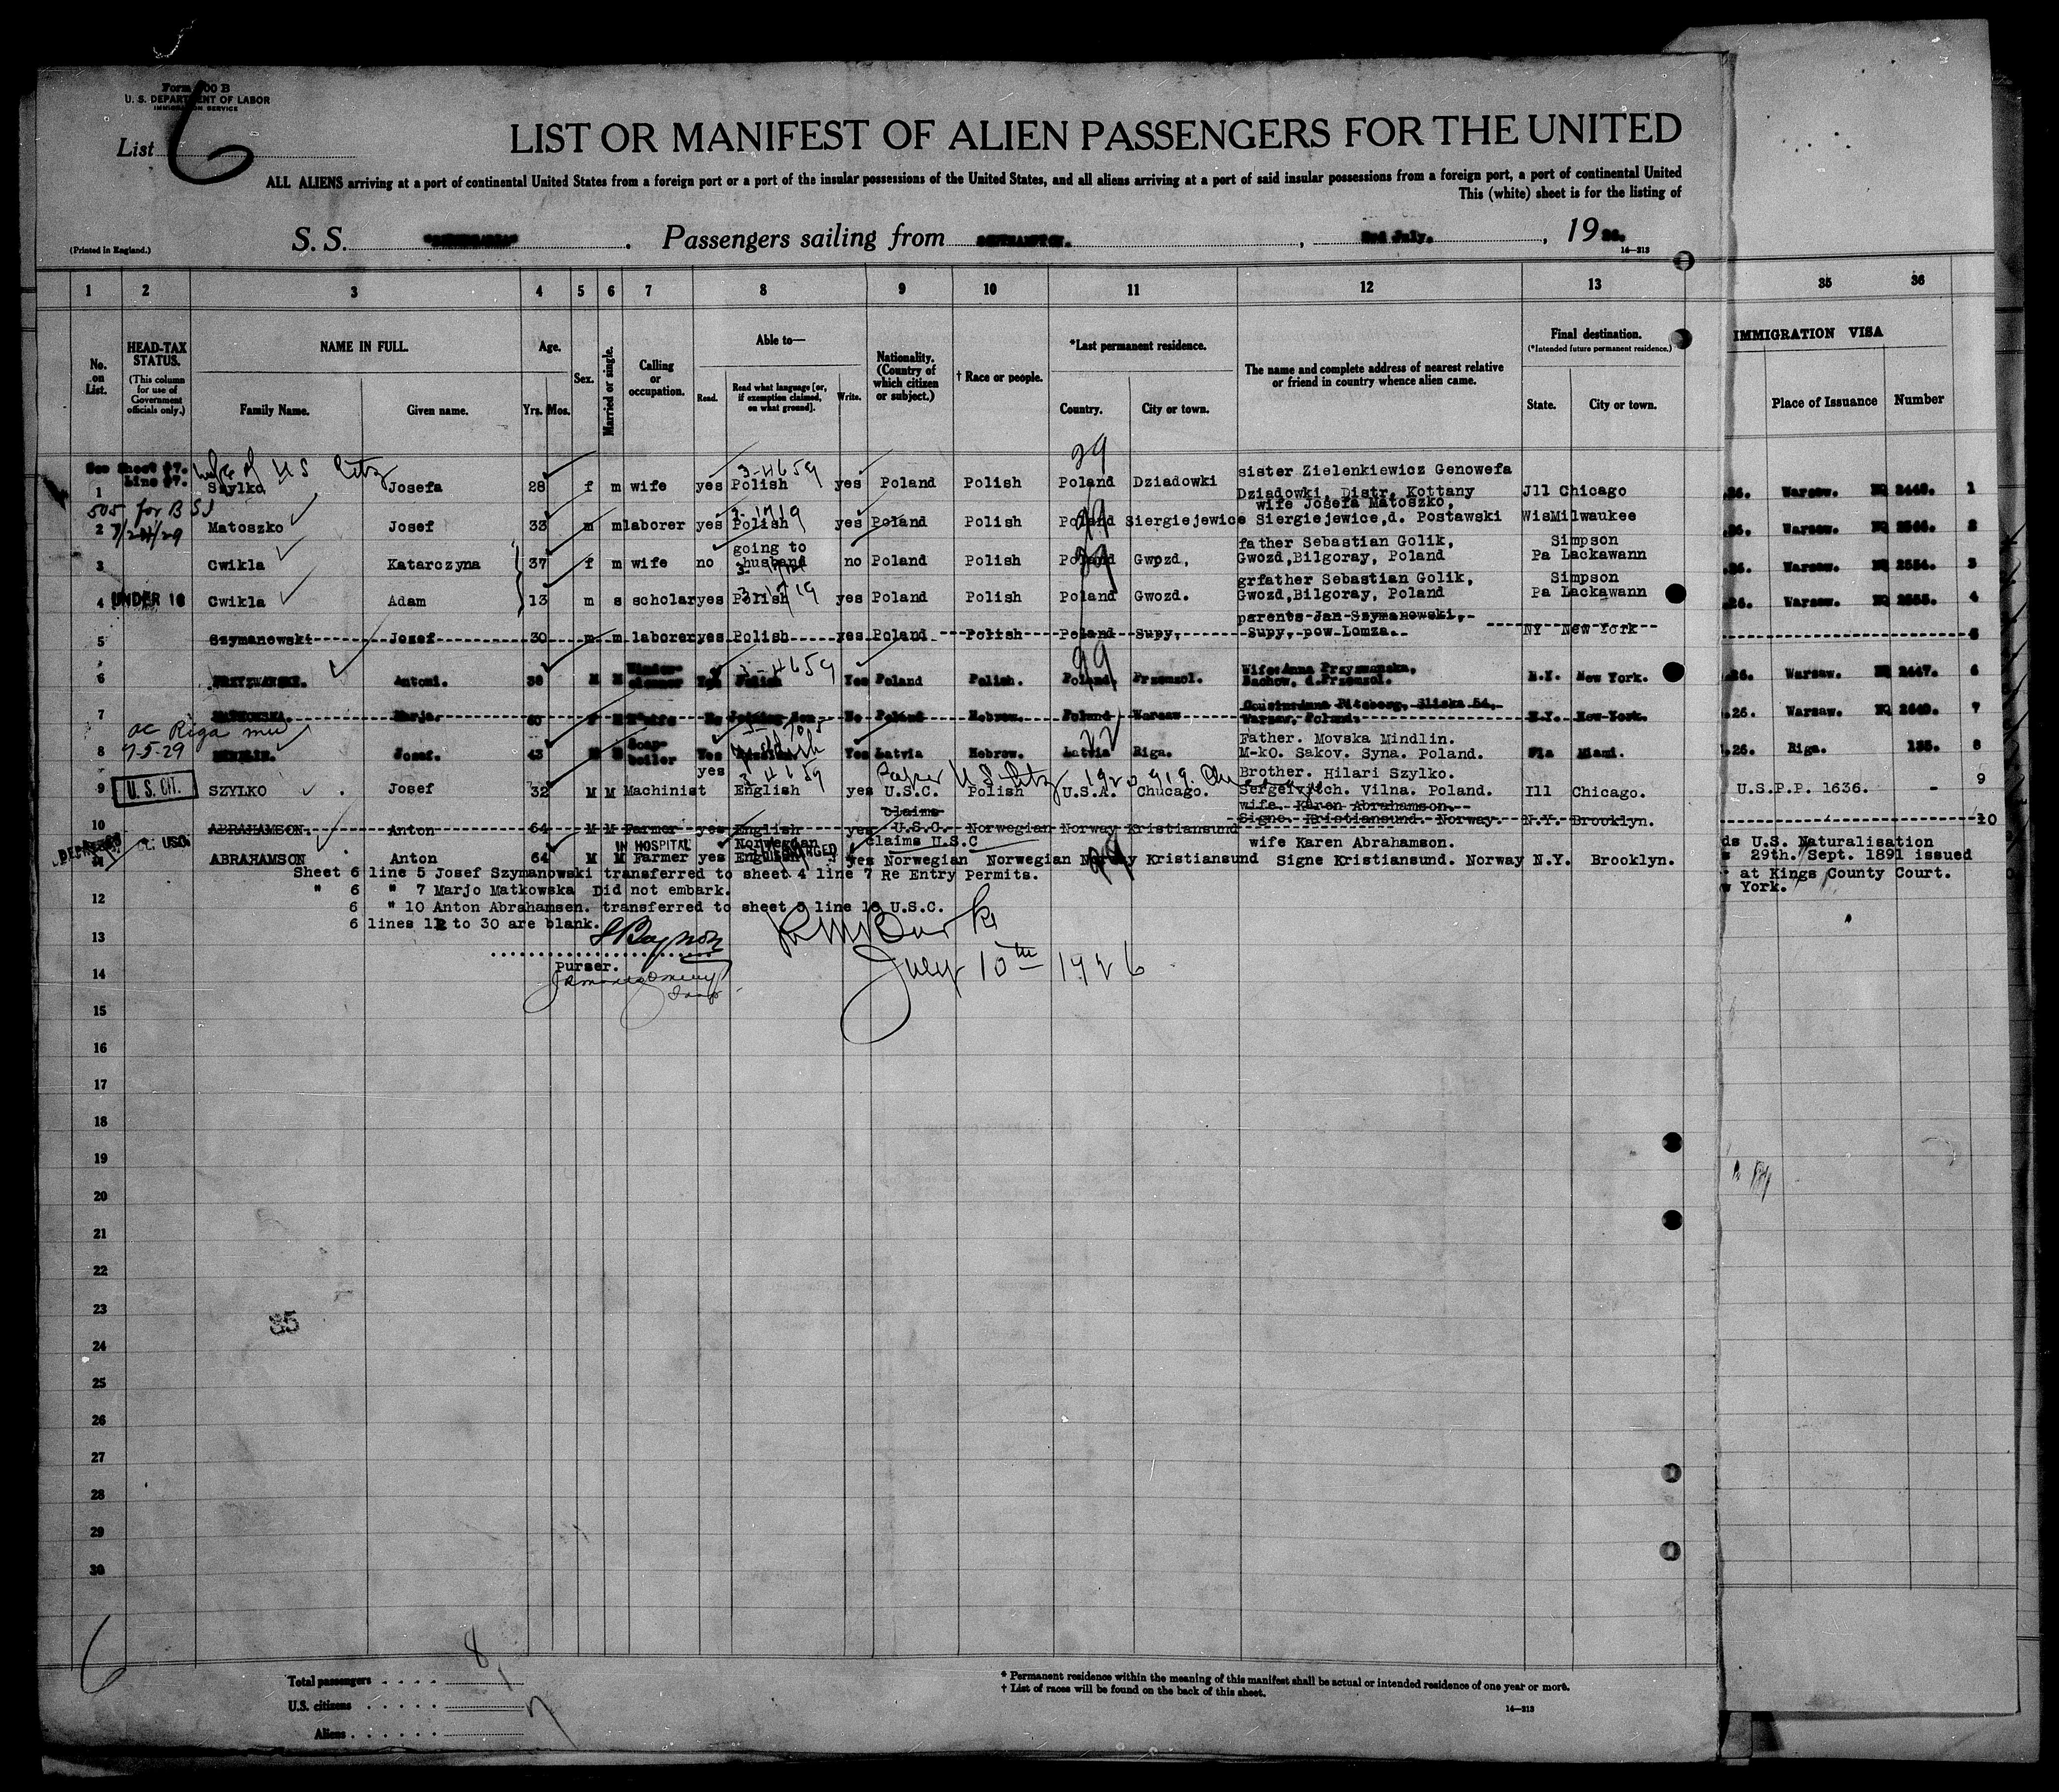 Form 500 B
U. S. DEPARTMENT OF LABOR
IMMIGRATION SERVICE
List 6
LIST OR MANIFEST OF ALIEN PASSENGERS FOR THE UNITED
ALL ALIENS arriving at a port of continental United States from a foreign port or a port of the insular possessions of the United States, and all aliens arriving at a port of said insular possessions from a foreign port, a port of continental United
This (white) sheet is for the listing of
(Printed in England.)
S. S. Passengers sailing from SOUTHAMPTON. , 2nd July. , 1926.
14—213
1 2 3 4 5 6 7 8 9 10 11 12 13 35 36
No. on List.
HEAD-TAX STATUS.
(This column for use of Government officials only.)
NAME IN FULL.
Family Name. Given name.
Age.
Yrs. Mos.
Sex.
Married or single.
Calling or occupation.
Able to—
Read. Read what language [or, if exemption claimed, on what ground]. Write.
Nationality. (Country of which citizen or subject.)
† Race or people.
*Last permanent residence.
Country. City or town.
The name and complete address of nearest relative or friend in country whence alien came.
Final destination.
(*Intended future permanent residence.)
State. City or town.
IMMIGRATION VISA
Place of Issuance Number
See Sheet #7. wife of US Citz
Line #7.
29
3-4659
sister Zielenkiewicz Genowefa
1 Szylko Josefa 28 f m wife yes Polish yes Poland Polish Poland Dziadowki Dziadowki, Distr, Kottany Jll Chicago .26. Warsaw. NQ 2448. 1
505 for BSI
wife Josefa Matoszko,
2 7/24/29 Matoszko Josef 33 m m laborer yes Polish yes Poland Polish Poland Siergiejewice Siergiejewice, d. Postawski Wis Milwaukee .26. Warsaw. NQ 2566. 2
going to father Sebastian Golik, Simpson
3 Cwikla Katarczyna 37 f m wife no husband no Poland Polish Poland Gwozd, Gwozd, Bilgoray, Poland Pa Lackawann .26. Warsaw. NQ 2554. 3
grfather Sebastian Golik, Simpson
4 UNDER 16 Cwikla Adam 13 m s scholar yes Polish yes Poland Polish Poland Gwozd. Gwozd, Bilgoray, Poland Pa Lackawann .26. Warsaw. NQ 2555. 4
parents Jan Szymanowski,
5 Szymanowski Jozef 30 m m laborer yes Polish yes Poland Polish Poland Supy, Supy, pow Lomza. NY New York 5
3-4659
99
Wife: Anna Przysmanska,
6 Antoni. 38 M M yes Polish Yes Poland Polish. Poland Przemsol. Bachow, d. Przemsol. N.Y. New York. .26. Warsaw. NQ 2447. 6
Cousin: Anna Pitsberg, Sliska 54,
7 MATKOWSKA. Marja. 60 F M H'wife No Joining Son. No Poland Hebrew. Poland Warsaw Warsaw, Poland. N.Y. New York. .26. Warsaw. NQ 2649. 7
ac Riga
7-5-29
Father. Movska Mindlin.
8 MINDLIN. Josef. 43 M M Soap-boiler Yes Yes Latvia Hebrew. Latvia Riga. M-kO. Sakov. Syna. Poland. Fla Miami. .26. Riga. 135. 8
3 4659
U.S. Citz 1920
Brother. Hilari Szylko.
9 U.S. CIT. SZYLKO Josef 32 M M Machinist yes English yes U.S.C. Polish U.S.A. Chucago. Sergeivich. Vilna. Poland. Ill Chicago. U.S.P.P. 1636. - 9
Claims wife. Karen Abrahamson.
10 ABRAHAMSON. Anton 64 M M Farmer yes English yes U.S.C. Norwegian Norway Kristiansund Signe. Kristiansund. Norway N.Y. Brooklyn. 10
IN HOSPITAL Norwegian DISCHARGED claims U.S.C wife Karen Abrahamson.
11 ABRAHAMSON Anton 64 M M Farmer yes English yes Norwegian Norwegian Norway Kristiansund Signe Kristiansund. Norway N.Y. Brooklyn.
ds U.S. Naturalisation
29th. Sept. 1891 issued
at Kings County Court.
York.
Sheet 6 line 5 Josef Szymanowski transferred to sheet 4 line 7 Re Entry Permits.
" 6 " 7 Marjo Matkowska Did not embark.
12
6 " 10 Anton Abrahamsen. transferred to sheet 5 line 18 U.S.C.
6 lines 12 to 30 are blank.
13
Purser.
July 10th 1926
14
15
16
17
18
19
20
21
22
23
35
24
25
26
27
28
29
30
6
Total passengers . . . . 8
U.S. citizens . . . . . 1
Aliens . . . . . . 7
* Permanent residence within the meaning of this manifest shall be actual or intended residence of one year or more.
† List of races will be found on the back of this sheet.
14—213